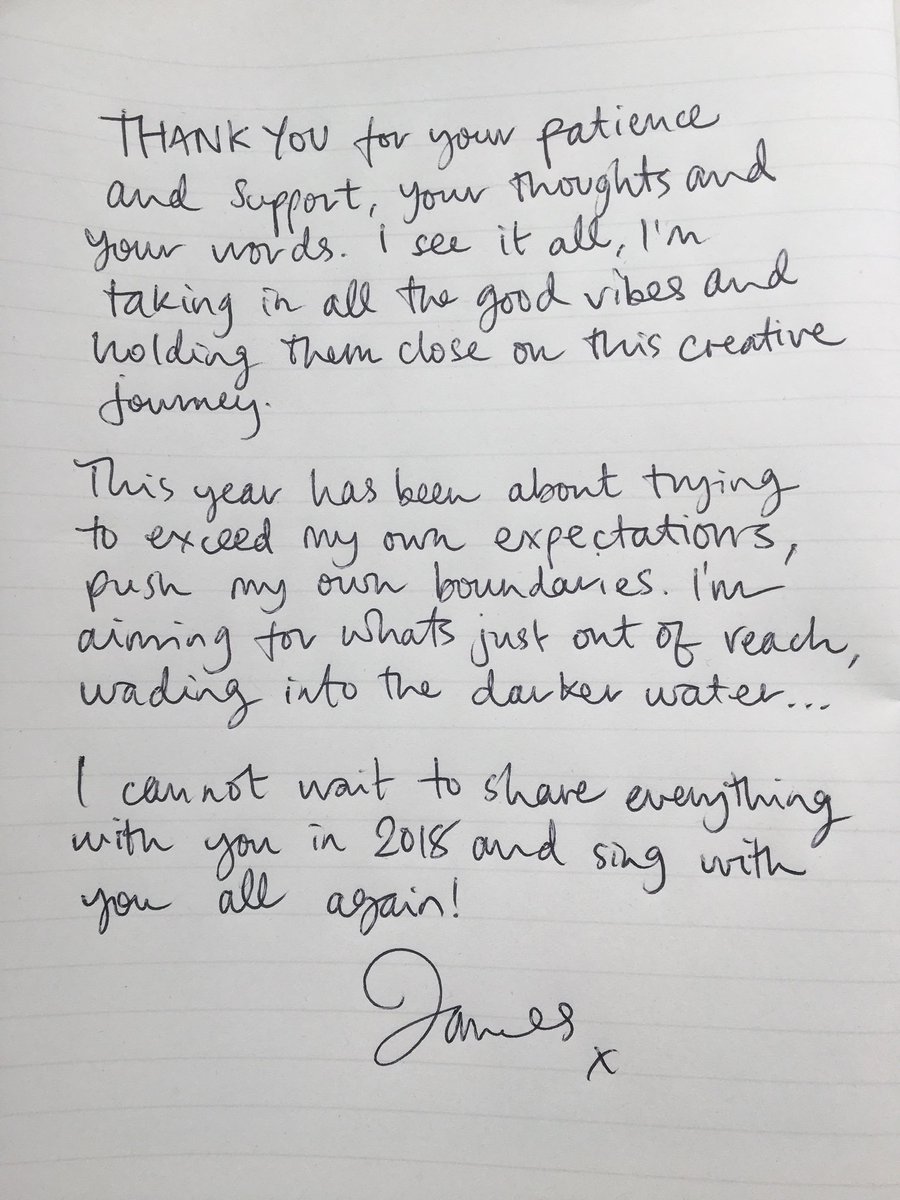 THANK YOU for your patience
and support, your thoughts and
your words. I see it all, I'm
taking in all the good vibes and
holding them close on this creative
journey.
This year has been about trying
to exceed my own expectations,
push my own boundaries. I'm
aiming for whats just out of reach,
wading into the darker water...
I cannot wait to share everything
with you in 2018 and sing with
you all again!
James
x